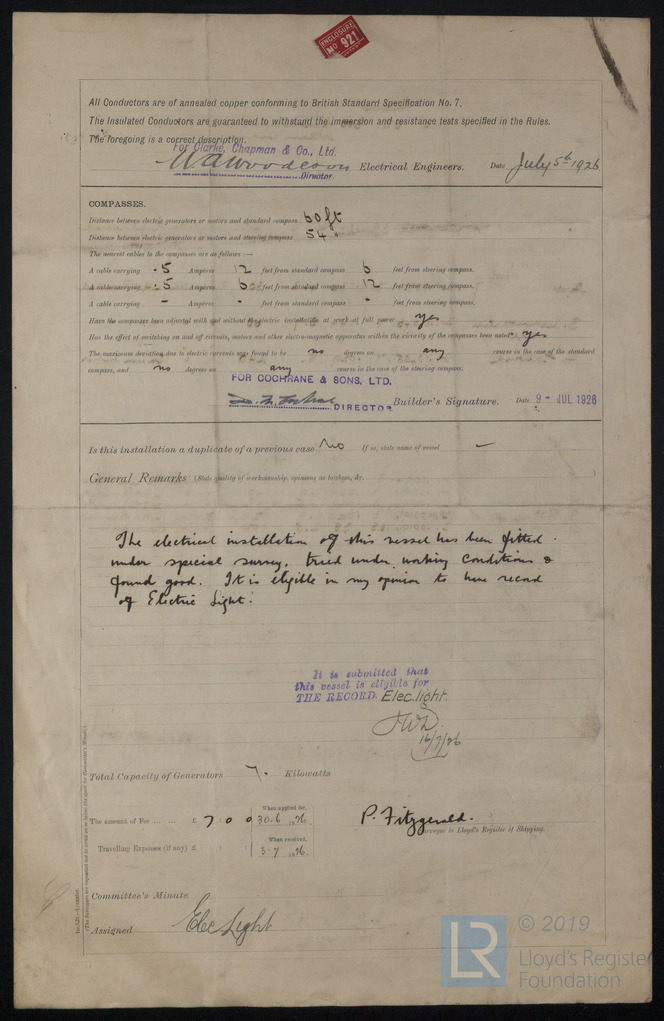 ENCLOSURE
No 921
All Conductors are of annealed copper conforming to British Standard Specification No. 7.
The Insulated Conductors are guaranteed to withstand the immersion and resistance tests specified in the Rules.
The foregoing is a correct description.
For Clarke, Chapman & Co., Ltd.
Electrical Engineers. Date July 5th 1926
Director.
COMPASSES.
Distance between electric generators or motors and standard compass 60 ft
Distance between electric generators or motors and steering compass 54 "
The nearest cables to the compasses are as follows :—
A cable carrying .5 Ampères 12 feet from standard compass 6 feet from steering compass.
A cable carrying .5 Ampères 6 feet from standard compass 12 feet from steering compass.
A cable carrying - Ampères - feet from standard compass - feet from steering compass.
Have the compasses been adjusted with and without the electric installation at work at full power yes
Has the effect of switching on and off circuits, motors and other electro-magnetic apparatus within the vicinity of the compasses been noted yes
The maximum deviation due to electric currents was found to be no degrees on any course in the case of the standard
compass, and no degrees on any course in the case of the steering compass.
FOR COCHRANE & SONS, LTD.
DIRECTOR Builder's Signature. Date 9 - JUL 1926
Is this installation a duplicate of a previous case No If so, state name of vessel —
General Remarks (State quality of workmanship, opinions as to class, &c.
The electrical installation of this vessel has been fitted
under special survey, tried under working conditions &
found good. It is eligible in my opinion to have record
of Electric Light.
It is submitted that
this vessel is eligible for
THE RECORD. Elec. light.
16/7/26
Total Capacity of Generators 7. Kilowatts
The amount of Fee ... ... £ 7 0 0 When applied for, 30.6 1926.
P. Fitzgerald.
Surveyor to Lloyd's Register of Shipping.
Travelling Expenses (if any) £ When received, 5.7 1926.
Committee's Minute
Assigned Elec Light
© 2019
LR Lloyd's Register
Foundation